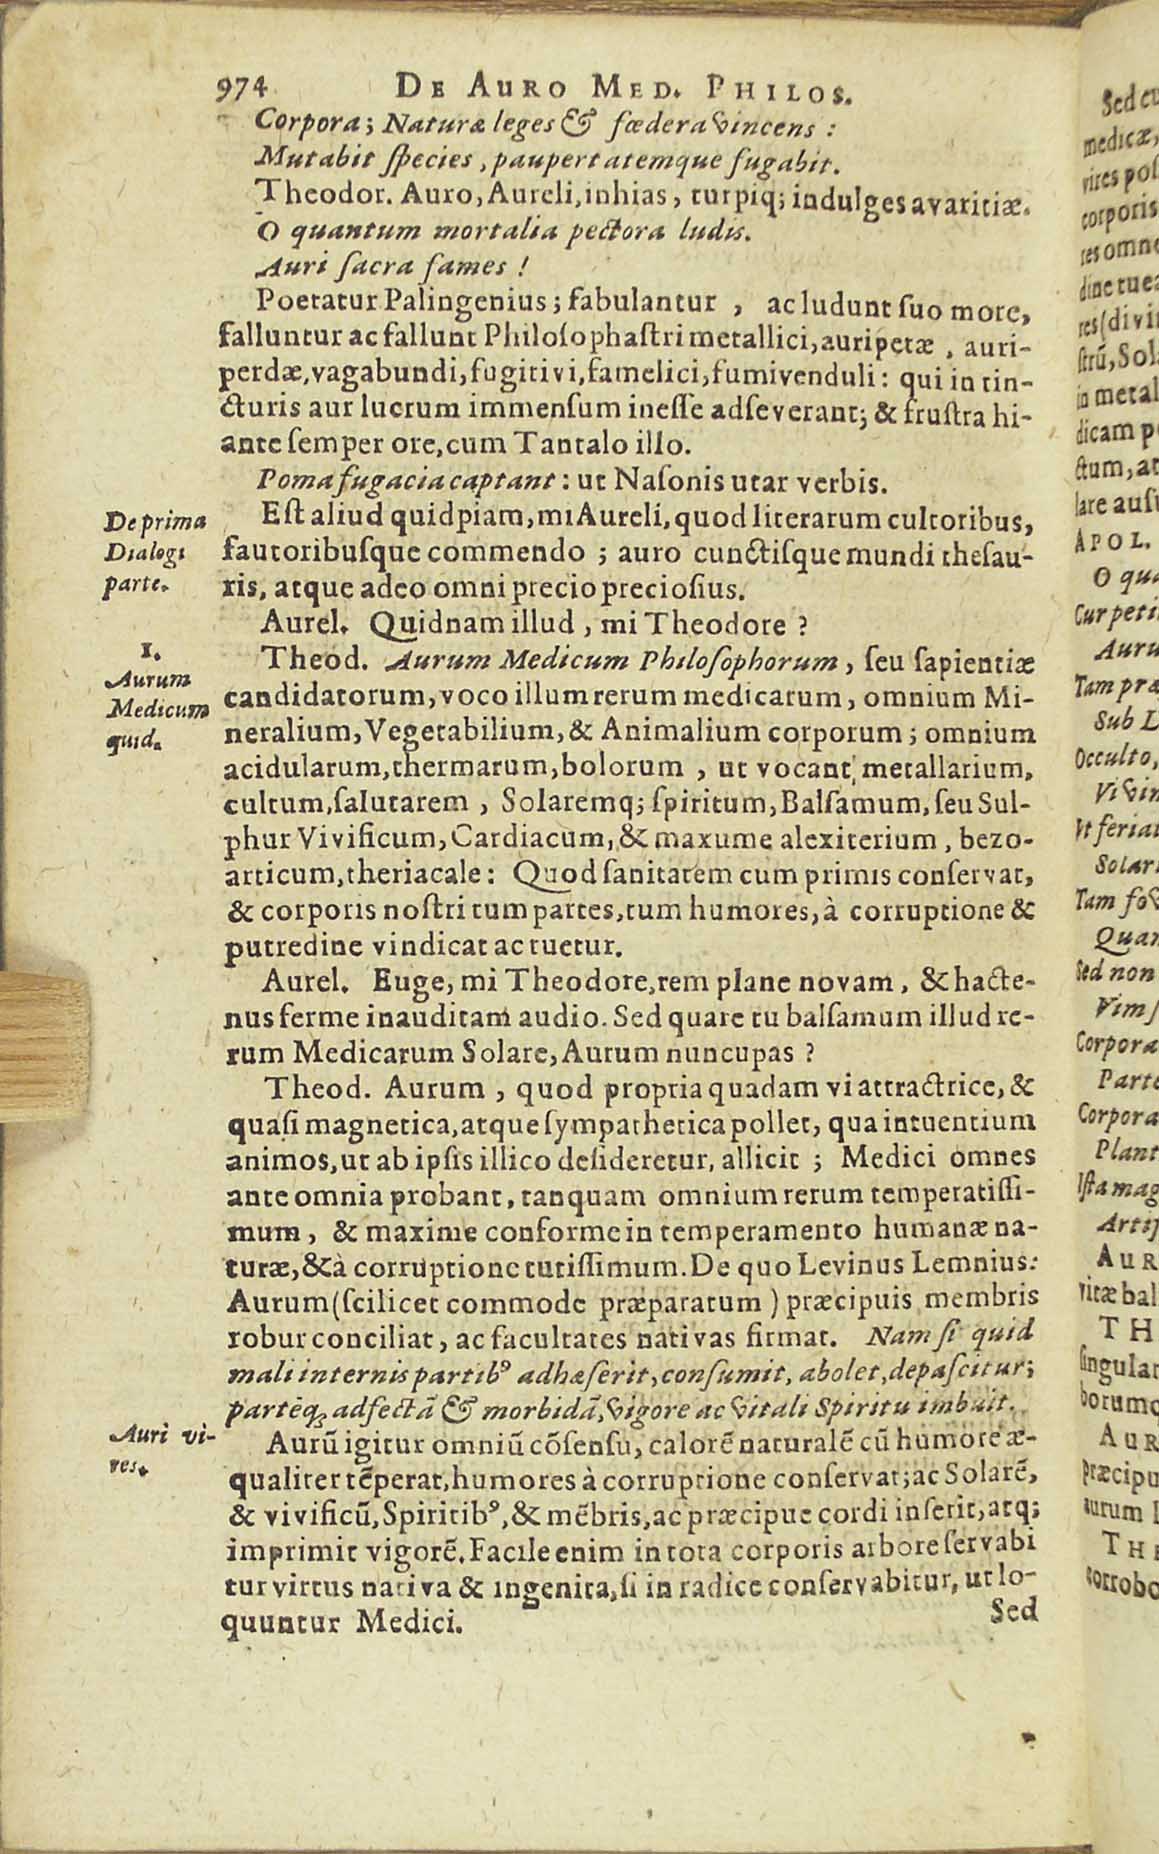 974 DE AURO MED. PHILOS.
Corpora; Naturæ leges & fœdera vincens :
Mutabit ſpecies, paupertatemque fugabit.
Theodor. Auro, Aureli, inhias, turpiq; indulges avaritiæ.
O quantum mortalia pectora ludis.
Auri ſacra fames !
Poetatur Palingenius; fabulantur , ac ludunt ſuo more,
falluntur ac fallunt Philoſophaſtri metallici, auripetæ , auri-
perdæ, vagabundi, fugitivi, famelici, fumivenduli: qui in tin-
cturis aur lucrum immenſum ineſſe adſeverant; & fruſtra hi-
ante ſemper ore, cum Tantalo illo.
Poma fugacia captant: ut Naſonis utar verbis.
De prima
Dialogi
parte.
Eſt aliud quidpiam, mi Aureli, quod literarum cultoribus,
fautoribuſque commendo ; auro cunctiſque mundi theſau-
ris, atque adeo omni precio precioſius.
Aurel. Quidnam illud, mi Theodore ?
1.
Aurum
Medicum
quid.
Theod. Aurum Medicum Philoſophorum, ſeu ſapientiæ
candidatorum, voco illum rerum medicarum, omnium Mi-
neralium, Vegetabilium, & Animalium corporum; omnium
acidularum, thermarum, bolorum , ut vocant, metallarium,
cultum, ſalutarem , Solaremq; ſpiritum, Balſamum, ſeu Sul-
phur Vivificum, Cardiacum, & maxume alexiterium, bezo-
articum, theriacale: Quod ſanitatem cum primis conſervat,
& corporis noſtri tum partes, tum humores, à corruptione &
putredine vindicat ac tuetur.
Aurel. Euge, mi Theodore, rem plane novam, & hacte-
nus ferme inauditam audio. Sed quare tu balſamum illud re-
rum Medicarum Solare, Aurum nuncupas ?
Theod. Aurum , quod propria quadam vi attractrice, &
quaſi magnetica, atque ſympathetica pollet, qua intuentium
animos, ut ab ipſis illico deſideretur, allicit ; Medici omnes
ante omnia probant, tanquam omnium rerum temperatiſſi-
mum, & maxime conforme in temperamento humanæ na-
turæ, & à corruptione tutiſſimum. De quo Levinus Lemnius:
Aurum (ſcilicet commode præparatum) præcipuis membris
robur conciliat, ac facultates nativas firmat. Nam ſi quid
mali internis partibꝰ adhæſerit, conſumit, abolet, depaſcitur;
partēq; adfectā & morbidā, vigore ac vitali Spiritu imbuit.
Auri vi-
res.
Aurū igitur omniū cōſenſu, calorē naturalē cū humore æ-
qualiter tēperat, humores à corruptione conſervat; ac Solarē,
& vivificū, Spiritibꝰ, & mēbris, ac præcipue cordi inſerit, atq;
imprimit vigorē. Facile enim in tota corporis arbore ſervabi
tur virtus nativa & ingenita, ſi in radice conſervabitur, ut lo-
quuntur Medici.
Sed